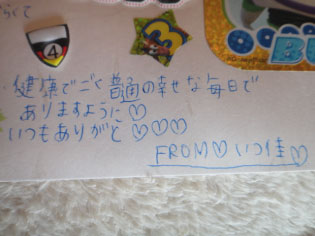 らくて
4
3
BU
健康でごく普通の幸せな毎日で
ありますように♡
いつもありがと♡♡♡
FROM♡いつ佳♡